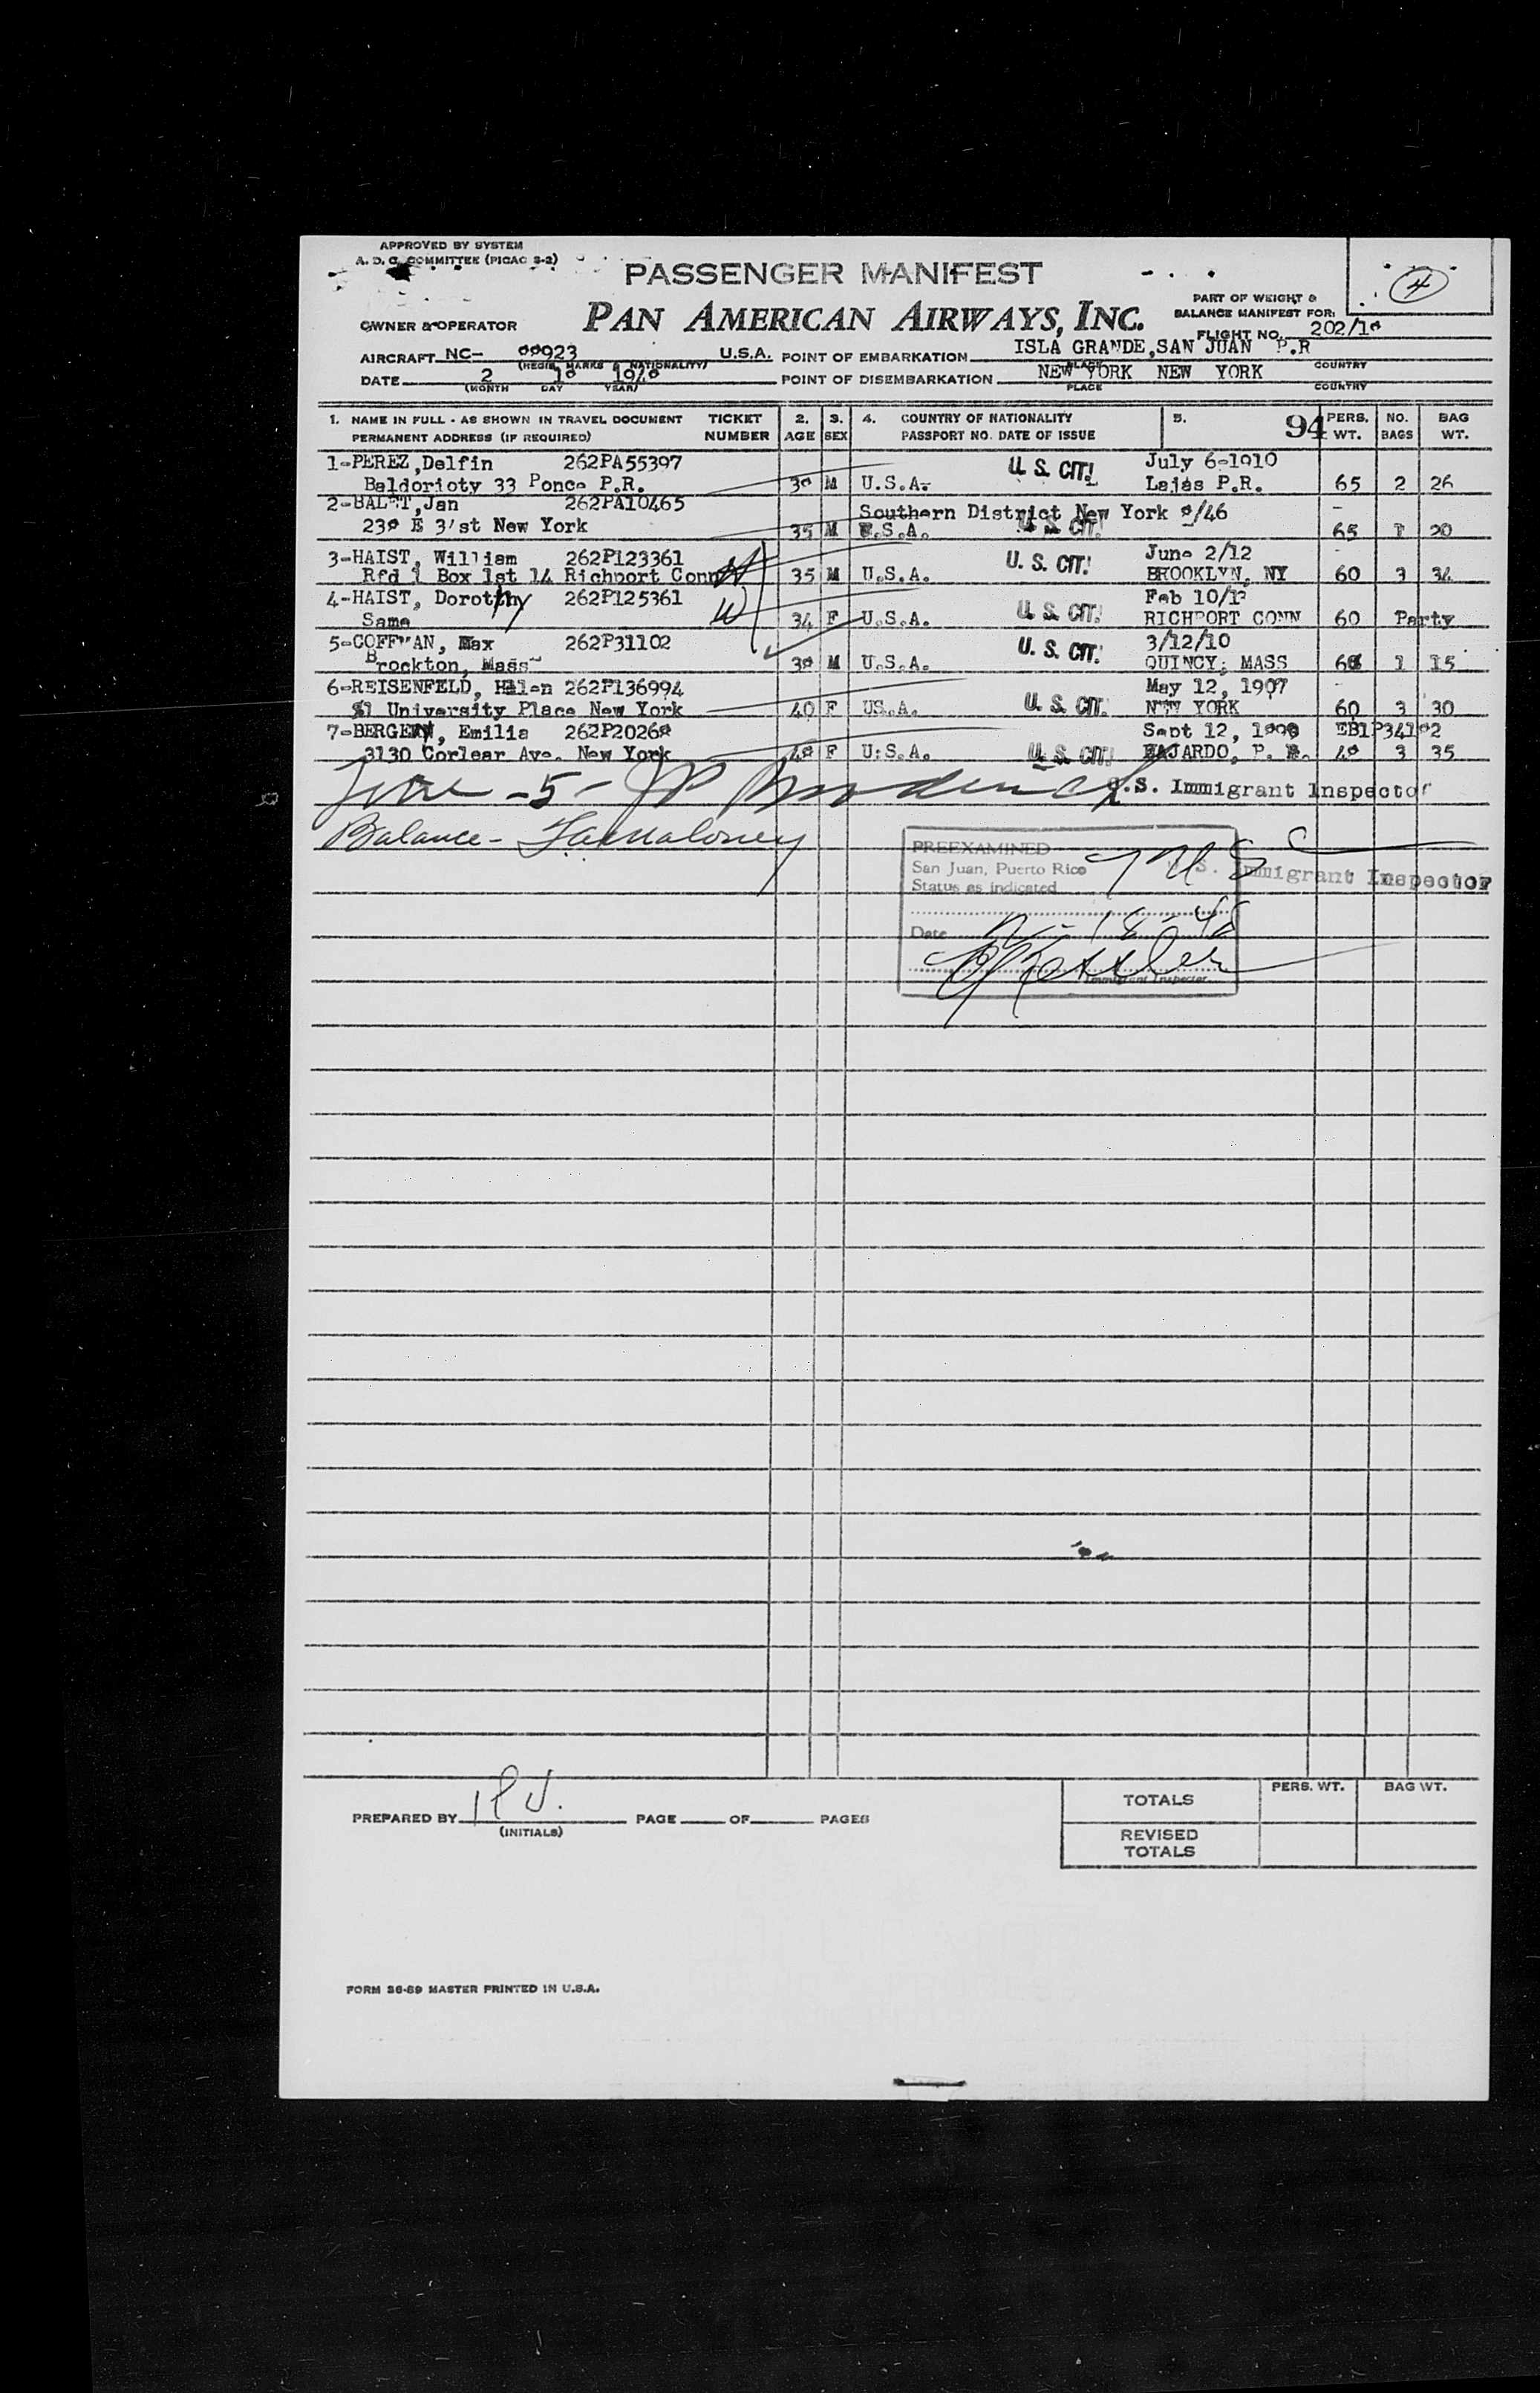 APPROVED BY SYSTEM
A. D. C. COMMITTEE (PICAO S-2)
PASSENGER MANIFEST
4
PAN AMERICAN AIRWAYS, INC.
PART OF WEIGHT &
BALANCE MANIFEST FOR:
OWNER & OPERATOR
FLIGHT NO. 202/18
AIRCRAFT NC- 88923 U.S.A. POINT OF EMBARKATION ISLA GRANDE,SAN JUAN P.R
(REGIS. MARKS & NATIONALITY) PLACE COUNTRY
DATE 2 18 1948 POINT OF DISEMBARKATION NEW YORK NEW YORK
(MONTH DAY YEAR) PLACE COUNTRY
1. NAME IN FULL - AS SHOWN IN TRAVEL DOCUMENT TICKET 2. 3. 4. COUNTRY OF NATIONALITY 5. 94 PERS. NO. BAG
PERMANENT ADDRESS (IF REQUIRED) NUMBER AGE SEX PASSPORT NO. DATE OF ISSUE WT. BAGS WT.
1-PEREZ,Delfin 262PA55397 U. S. CIT! July 6-1910
Baldorioty 33 Ponce P.R. 38 M U.S.A. Lajas P.R. 65 2 26
2-BALET,Jan 262PA10465 Southern District New York 8/46
New York 35 M U.S.A. U. S. CIT! 65 1 20
3-HAIST, William 262P123361 U. S. CIT! June 2/12
Rfd 1 Box 1st 14 Richport Conn 35 M U.S.A. BROOKLYN, NY 60 3 34
4-HAIST, Dorothy 262P125361 Feb 10/13
Same 34 F U.S.A. U. S. CIT! RICHPORT CONN 60 Party
5-COFFMAN, Max 262P31102 U. S. CIT! 3/12/10
Brockton, Mass 38 M U.S.A. QUINCY, MASS 1 15
6-REISENFELD, Helen 262P136994 May 12, 1907
University Place New York 40 F US.A. U. S. CIT! NEW YORK 60 3 30
7-BERGEN, Emilia 262P20268 Sept 12,
3130 Corlear Ave. New York 48 F U.S.A. U. S. CIT! FAJARDO, P. R. 48 3 35
- 5 - U.S. Immigrant Inspector
Balance -
PREEXAMINED
San Juan, Puerto Rico U.S. Immigrant Inspector
Status as indicated
Date 2-18-48
Immigrant Inspector
PREPARED BY PAGE OF PAGES
(INITIALS)
PERS. WT. BAG WT.
TOTALS
REVISED
TOTALS
FORM 36-69 MASTER PRINTED IN U.S.A.